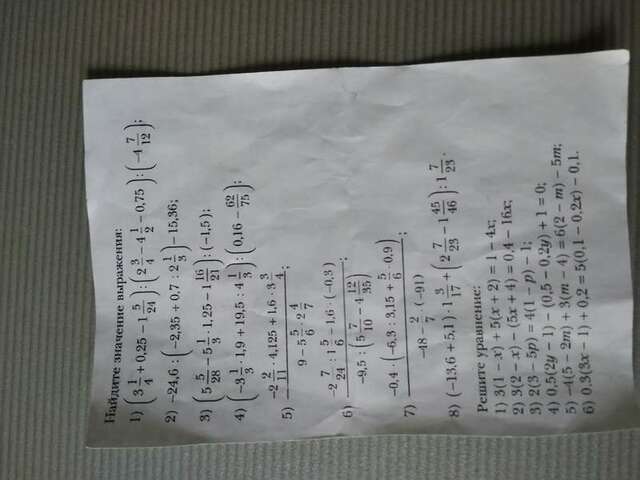 Найдите значение выражения:
1) (3 1/4 + 0,25 − 1 5/24) : (2 3/4 − 4 1/2 − 0,75) : (−4 7/12);
2) −24,6 : (−2,35 + 0,7 : 2 1/3) − 15,36;
3) (5 5/28 − 5 1/3 · 1,25 − 1 16/21) : (−1,5);
4) (−3 1/3 · 1,9 + 19,5 : 4 1/3) : (0,16 − 62/75);
5) (−2 2/11 · 4,125 + 1,6 · 3 3/4) / (9 − 5 5/6 · 2 4/7);
6) (−2 7/24 : 1 5/6 − 1,6 · (−0,3)) / (−9,5 : (5 7/10 − 4 12/35));
7) (−0,4 · (−6,3 : 3,15 + 5/6 · 0,9)) / (−48 − 2/7 · (−91))
8) (−13,6 + 5,1) · 1 3/17 + (2 7/23 − 1 45/46) : 1 7/23.
Решите уравнение:
1) 3(1 − x) + 5(x + 2) = 1 − 4x;
2) 3(2 − x) − (5x + 4) = 0,4 − 16x;
3) 2(3 − 5p) = 4(1 − p) − 1;
4) 0,5(2y − 1) − (0,5 − 0,2y) + 1 = 0;
5) −4(5 − 2m) + 3(m − 4) = 6(2 − m) − 5m;
6) 0,3(3x − 1) + 0,2 = 5(0,1 − 0,2x) − 0,1.